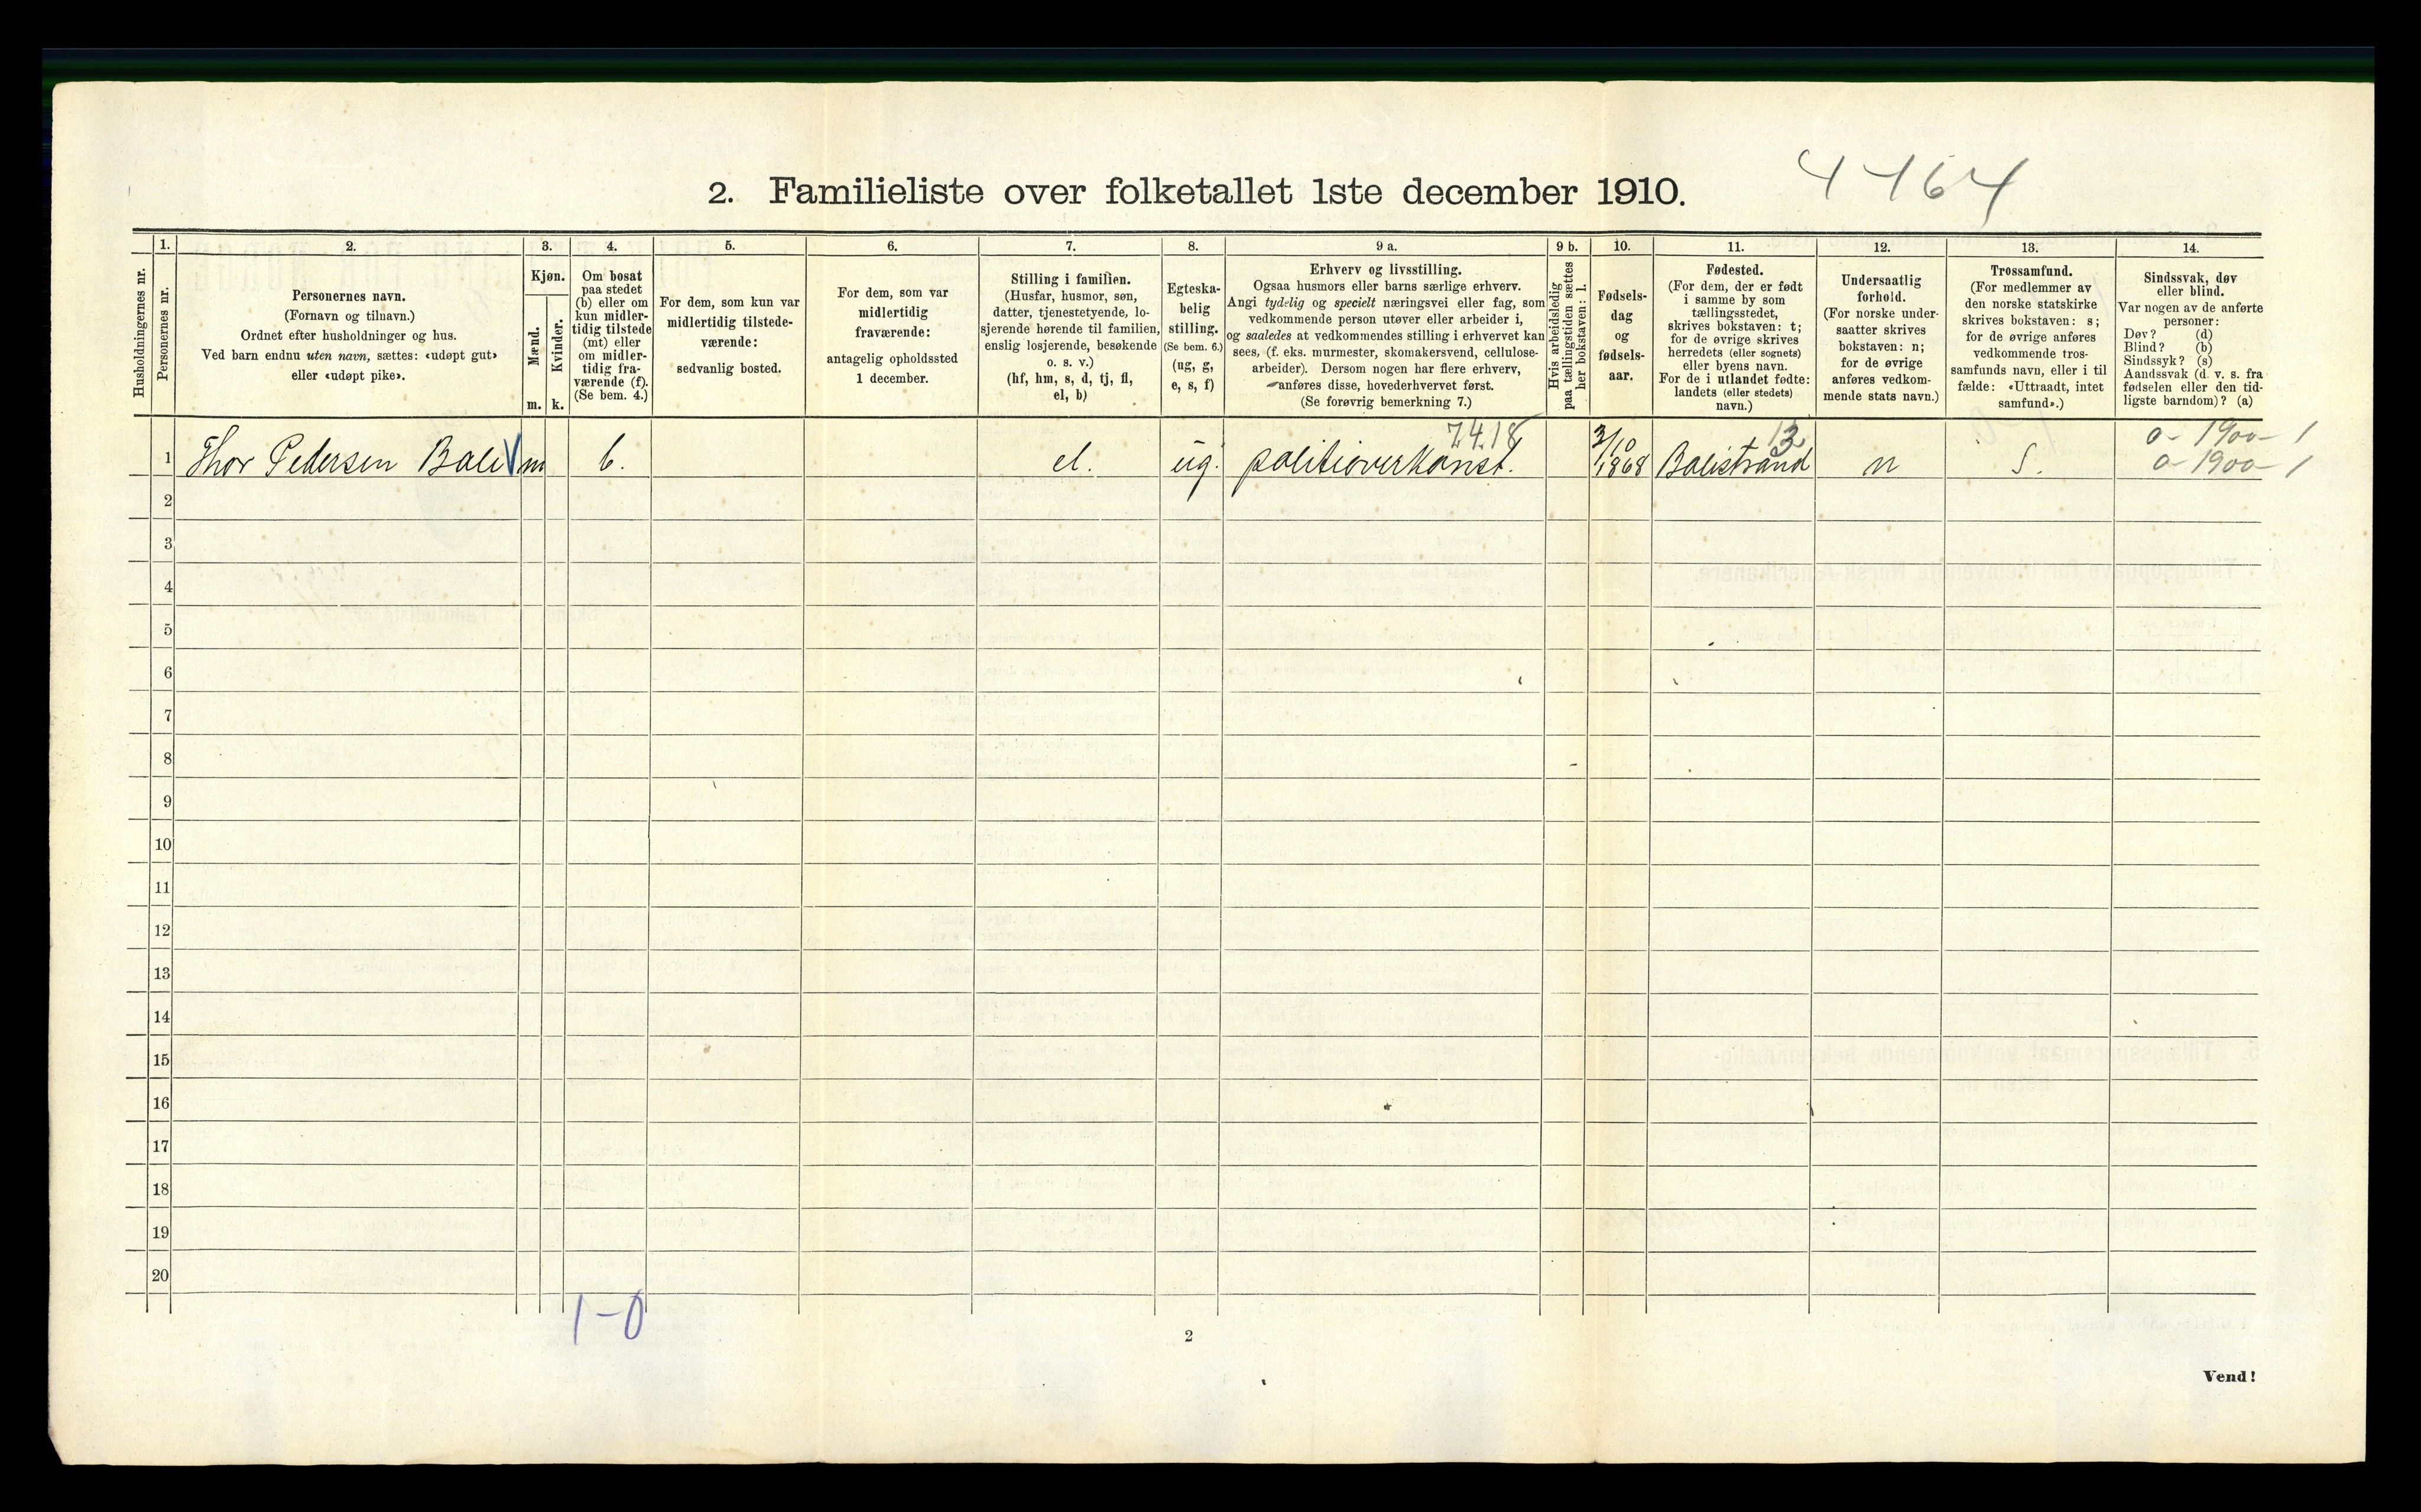 2. Familieliste over folketallet 1ste december 1910.
4464
Husholdningernes nr.
1.
Personernes nr.
2.
Personernes navn.
(Fornavn og tilnavn.)
Ordnet efter husholdninger og hus.
Ved barn endnu uten navn, sættes: «udøpt gut»
eller «udøpt pike».
3.
Kjøn.
Mænd.
m.
Kvinder.
k.
4.
Om bosat
paa stedet
(b) eller om
kun midler-
tidig tilstede
(mt) eller
om midler-
tidig fra-
værende (f).
(Se bem. 4.)
5.
For dem, som kun var
midlertidig tilstede-
værende:
sedvanlig bosted.
6.
For dem, som var
midlertidig
fraværende:
antagelig opholdssted
1 december.
7.
Stilling i familien.
(Husfar, husmor, søn,
datter, tjenestetyende, lo-
sjerende hørende til familien,
enslig losjerende, besøkende
o. s. v.)
(hf, hm, s, d, tj, fl,
el, b)
8.
Egteska-
belig
stilling.
(Se bem. 6.)
(ug, g,
e, s, f)
9 a.
Erhverv og livsstilling.
Ogsaa husmors eller barns særlige erhverv.
Angi tydelig og specielt næringsvei eller fag, som
vedkommende person utøver eller arbeider i,
og saaledes at vedkommendes stilling i erhvervet kan
sees, (f. eks. murmester, skomakersvend, cellulose-
arbeider). Dersom nogen har flere erhverv,
anføres disse, hovederhvervet først.
(Se forøvrig bemerkning 7.)
9 b.
Hvis arbeidsledig
paa tællingstiden sættes
her bokstaven: l.
10.
Fødsels-
dag
og
fødsels-
aar.
11.
Fødested.
(For dem, der er født
i samme by som
tællingsstedet,
skrives bokstaven: t;
for de øvrige skrives
herredets (eller sognets)
eller byens navn.
For de i utlandet fødte:
landets (eller stedets)
navn.)
12.
Undersaatlig
forhold.
(For norske under-
saatter skrives
bokstaven: n;
for de øvrige
anføres vedkom-
mende stats navn.)
13.
Trossamfund.
(For medlemmer av
den norske statskirke
skrives bokstaven: s;
for de øvrige anføres
vedkommende tros-
samfunds navn, eller i til
fælde: «Uttraadt, intet
samfund».)
14.
Sindssvak, døv
eller blind.
Var nogen av de anførte
personer:
Døv? (d)
Blind? (b)
Sindssyk? (s)
Aandssvak (d. v. s. fra
fødselen eller den tid-
ligste barndom)? (a)
7.4.18 13 0-1900-1
1 Thor Pedersen Bale m b. el. ug. politioverkonst. 3/10 1868 Balestrand n s. 0-1900-1
2
3
4
5
6
7
8
9
10
11
12
13
14
15
16
17
18
19
20
1-0
2
Vend!